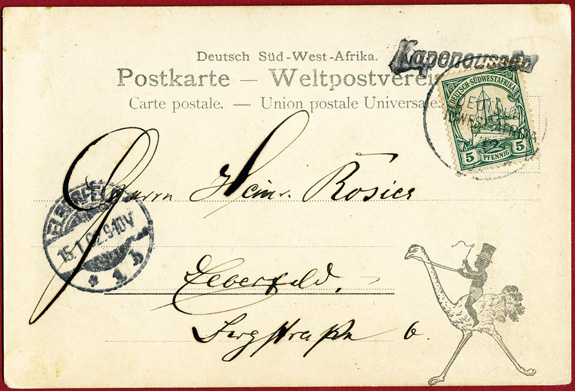 Deutsch Süd-West-Afrika.
Postkarte — Weltpostverein
Carte postale. — Union postale Universale.
DEUTSCH-SÜDWESTAFRIKA
5 PFENNIG 5
15.1.02.9-10V
Herrn Heinr. Rosier
Elberfeld.
6.